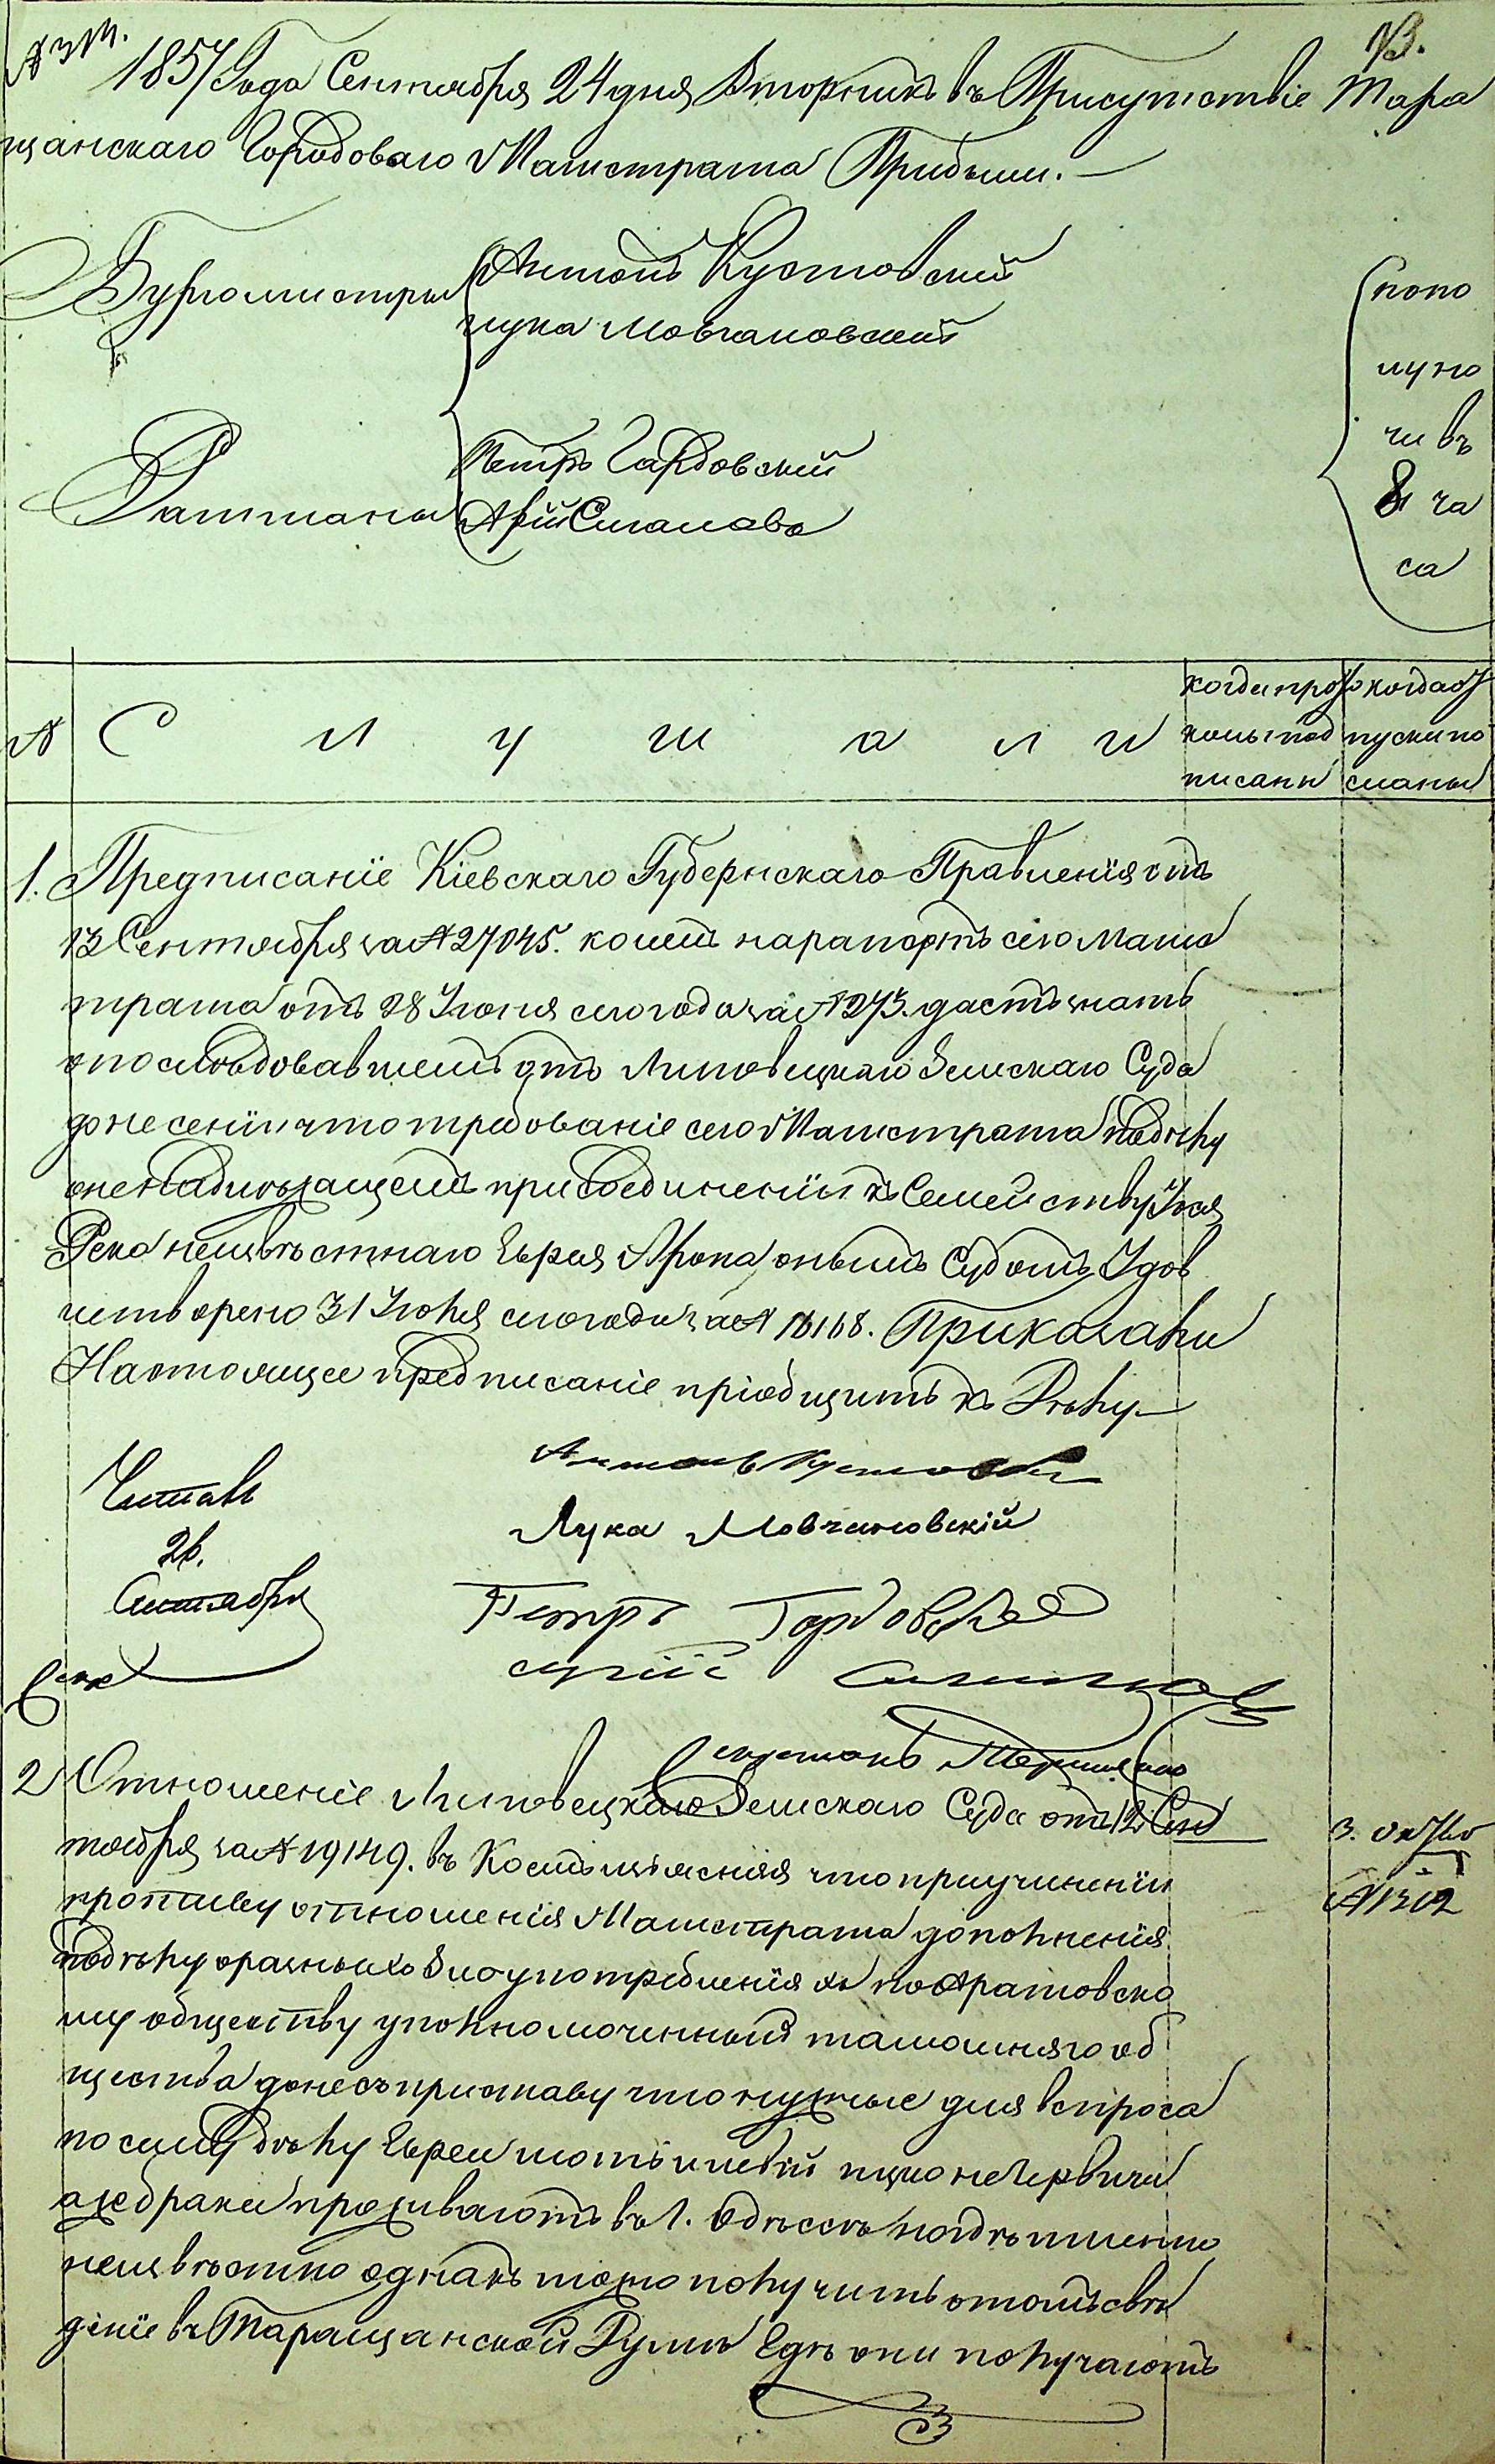 13.
1857 Года Сентября 24 дня Вторникъ въ Присутствіе Тара
щанскаго Городоваго Магистрата Прибыли.
Бургомистры
Антонъ Кустовскій
Лука Мовчановскій
попо
луно
чи въ
8 ча
са
Ратманы
Петръ Гардовскій
№ С л у ш а л и
когда прото
колы под
писаны
когда от
пуски по
сланы
1. Предписаніе Кіевскаго Губернскаго Правленія отъ
13 Сентября за № 27045. коимъ на рапортъ сего Магис
трата отъ 28 Іюня сего года за № 1273. даетъ знать
о послѣдовавшемъ отъ Липовецкаго Земскаго Суда
донесеніи что требованіе сего Магистрата по дѣлу
о неподлежащемъ присоединеніи къ Семейству
неизвѣстнаго Еврея Арона онымъ Судомъ Удов
летворено 31 Іюля сего года за № 16168. Приказали
Настоящее предписаніе пріобщить къ Дѣлу
Читалъ
26.
Сентября
Секр
Антонъ Кустовскій
Лука Мовчановскій
Петръ Гардовскій
2 Отношеніе Липовецкаго Земскаго Суда отъ 12 Сен
тября за № 19149. въ Коемъ изъясняя что при учиненіи
противу отношенія Магистрата дополненія
по дѣлу о разныхъ Злоупотребленіяхъ по Аратовско
му обществу уполномоченный тамошняго об
щества донесъ приставу что нужные для вспроса
по сему дѣлу Евреи
проживаютъ въ Г. Одессѣ но гдѣ именно
неизвѣстно однакъ можно получить о томъ свѣ
деніе въ Таращанской Думѣ Гдѣ они получаютъ
3. Октяб
№ 1302